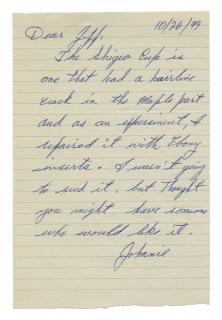 10/26/99
Dear Jeff,
The Shigeo Cup is
one that had a hairline
crack in the Maple part
and as an experiment, I
repaired it with Ebony
inserts. I wasn't going
to send it, but thought
you might have someone
who would like it.
Johnnie